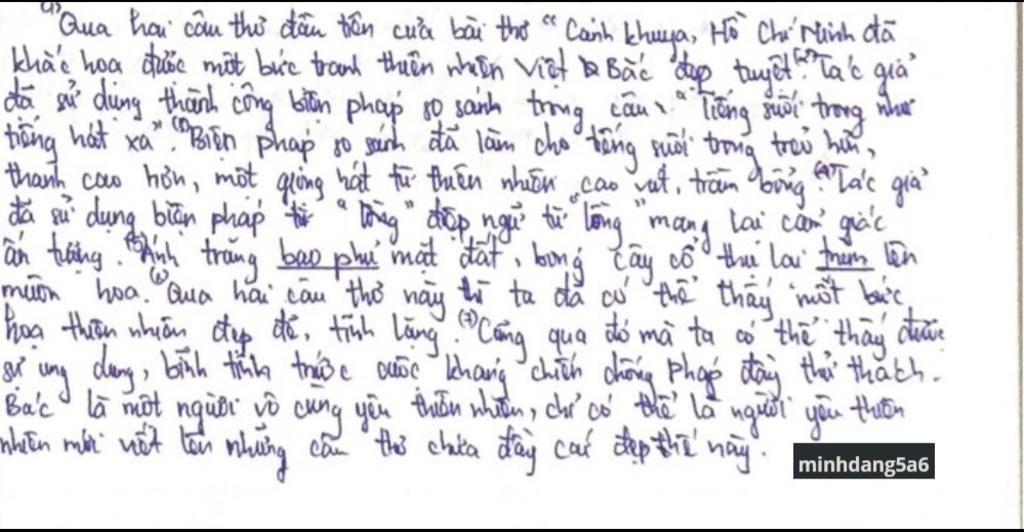 (1) Qua hai câu thơ đầu tiên của bài thơ "Cảnh khuya, Hồ Chí Minh đã
khắc hoạ được một bức tranh thiên nhiên Việt Bắc đẹp tuyệt. (2) Tác giả
đã sử dụng thành công biện pháp so sánh trong câu "Tiếng suối trong như
tiếng hát xa". (3) Biện pháp so sánh đã làm cho tiếng suối trong trẻo hơn,
thanh cao hơn, một giọng hát từ thiên nhiên cao vút, trầm bổng. (4) Tác giả
đã sử dụng biện pháp "lồng" điệp ngữ từ "lồng" mang lại cảm giác
ấn tượng. (5) Ánh trăng bao phủ mặt đất, bóng cây cổ thụ lại trùm lên
muôn hoa. (6) Qua hai câu thơ này ta đã có thể thấy một bức
hoạ thiên nhiên đẹp đẽ, tĩnh lặng. (7) Cũng qua đó mà ta có thể thấy được
sự ung dung, bình tĩnh trước cuộc kháng chiến chống Pháp đầy thử thách.
Bác là một người vô cùng yêu thiên nhiên, chỉ có thể là người yêu thiên
nhiên mới viết lên những câu thơ chứa đầy cái đẹp thế này.
minhdang5a6